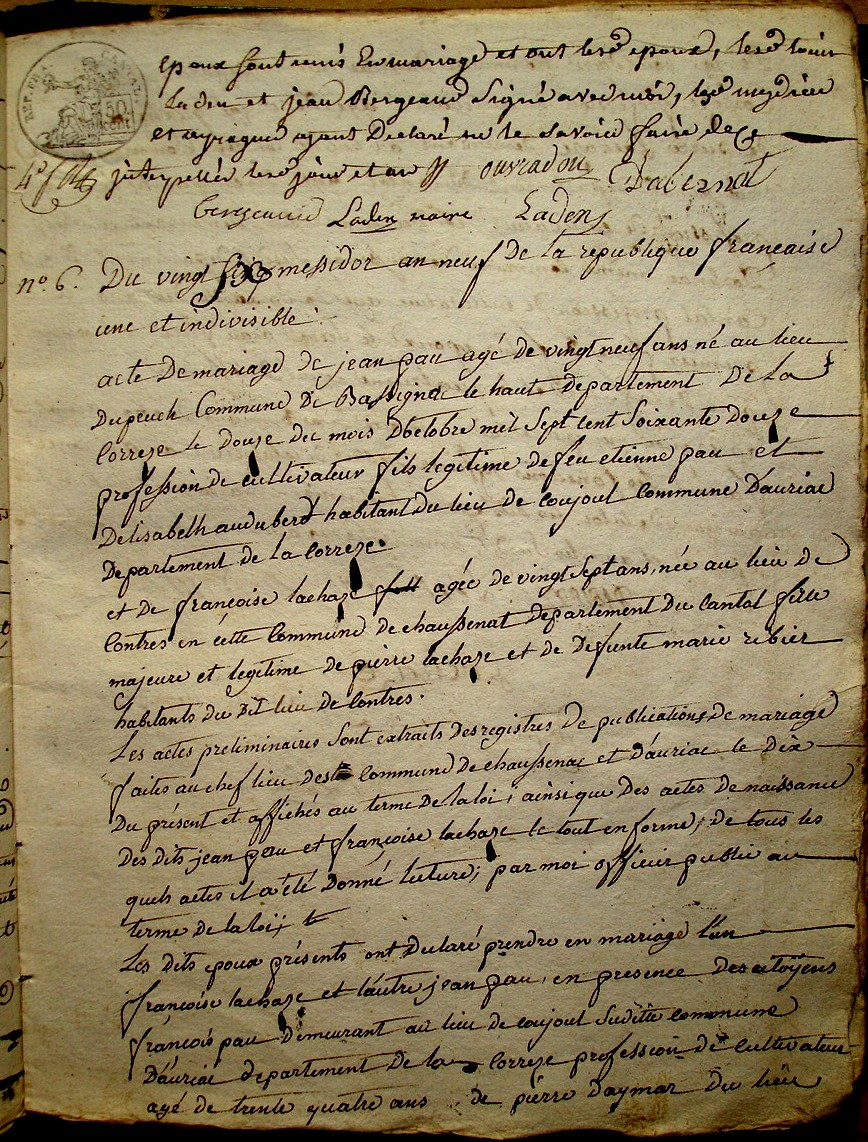 epoux sont unis En mariage et ont les dits epoux, les dits louis
Laden et jean Bergeaud Signé avec moi,
et ayant Declaré ne le savoir faire de ce
interpellés les dits jour et an ouvradou Dabernat
bergeaud Laden maire Laden
n° 6. Du vingt six messidor an neuf De la republique francaise
une et indivisible.
acte De mariage de jean pau agé de vingt neuf ans né au lieu
Dupeuch Commune De Bassignac le haut departement De La
Correze le Douze du mois D'octobre mil Sept cent Soixante Douze
profession de cultivateur fils legitime de feu etienne pau et
Delisabelh auduberd habitant Du lieu de coujoul Commune D'auriac
Departement de la Correze.
et de françoise lachaze agée de vingt Sept ans, née au lieu de
Contres en cette Commune de chaussenat departement Du Cantal fille
majeure et legitime de pierre lachaze et de Defunte marie ribier
habitants du Dit lieu de Contres.
Les actes preliminaires Sont extraits Des registres De publications De mariage
faites au chef lieu des Commune De chaussenac et D'auriac le Dix
Du présent et affichés au terme De la loi; ainsi que Des actes De naissance
Des dits jean pau et françoise lachaze le tout en forme; de tous les
quels actes il a été Donné lecture; par moi officier public au
terme de la loi;
Les Dits epoux présents ont Declaré prendre en mariage l'un
françoise lachaze et l'autre jean pau, en presence Des citoÿens
françois pau Demeurant au lieu de coujoul Suditte commune
D'auriac departement De la Correze profession de cultivateur
agé de trente quatre ans, de pierre Daymar Du lieu